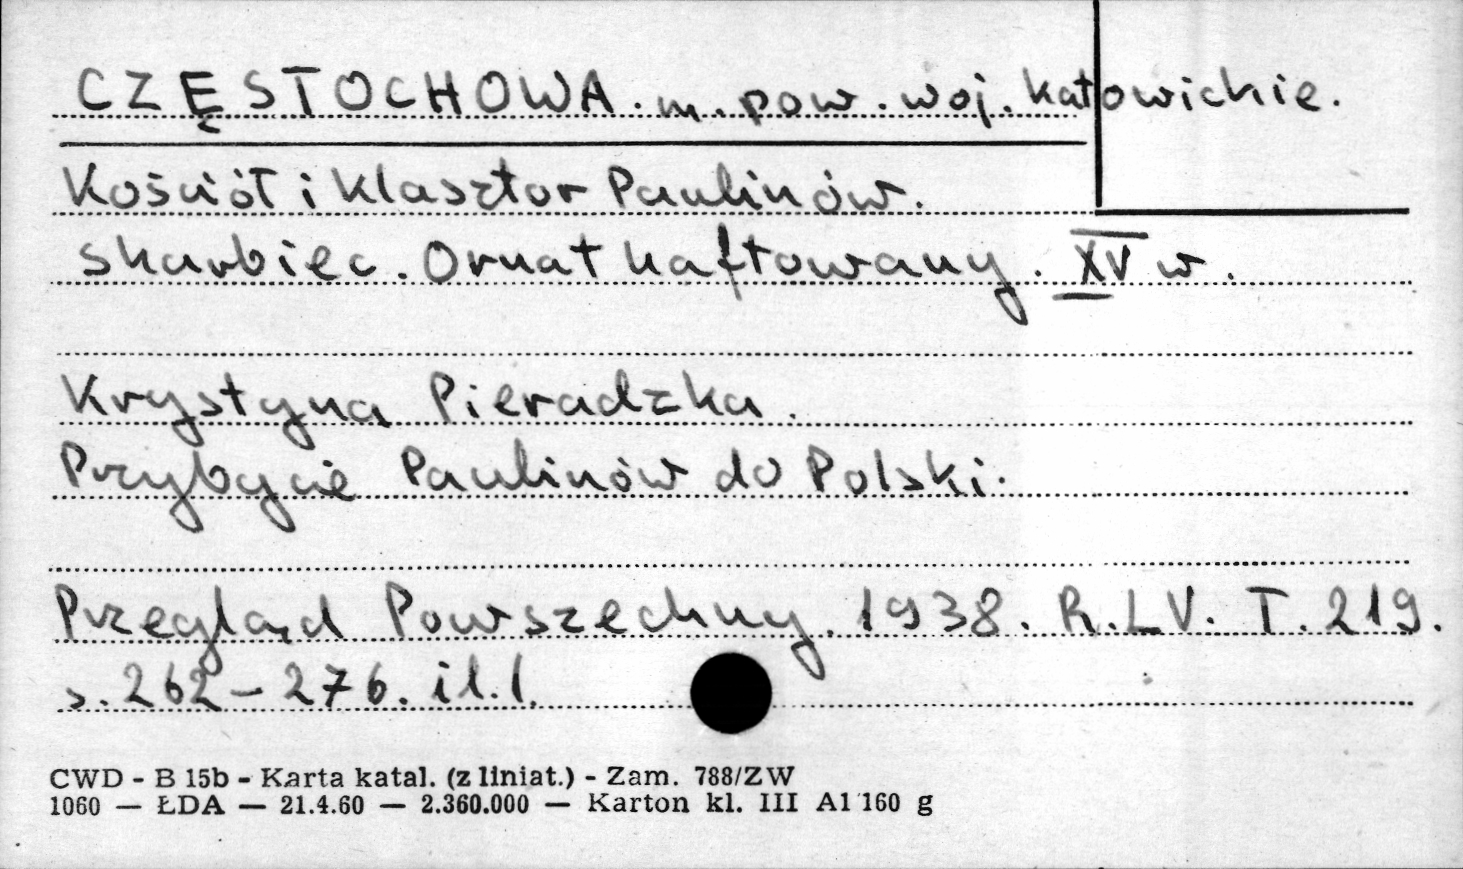 CZĘSTOCHOWA. m. pow. woj. katowickie.
Kościół i klasztor Paulinów.
skarbiec. Ornat haftowany. XV w.
Krystyna Pieradzka.
Przybycie Paulinów do Polski.
Przegląd Powszechny. 1938. R. LV. T. 219.
s. 262 – 276. il. 1.
CWD - B 15b - Karta katal. (z liniat.) - Zam. 788/ZW
1060 — ŁDA — 21.4.60 — 2.360.000 — Karton kl. III A1 160 g